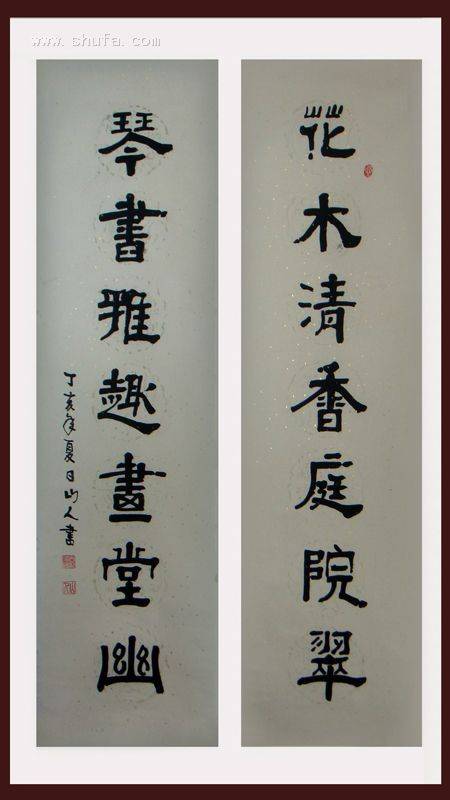 www.shufa.com
花木清香庭院翠
琴書雅趣畫堂幽
丁亥年夏日山人書